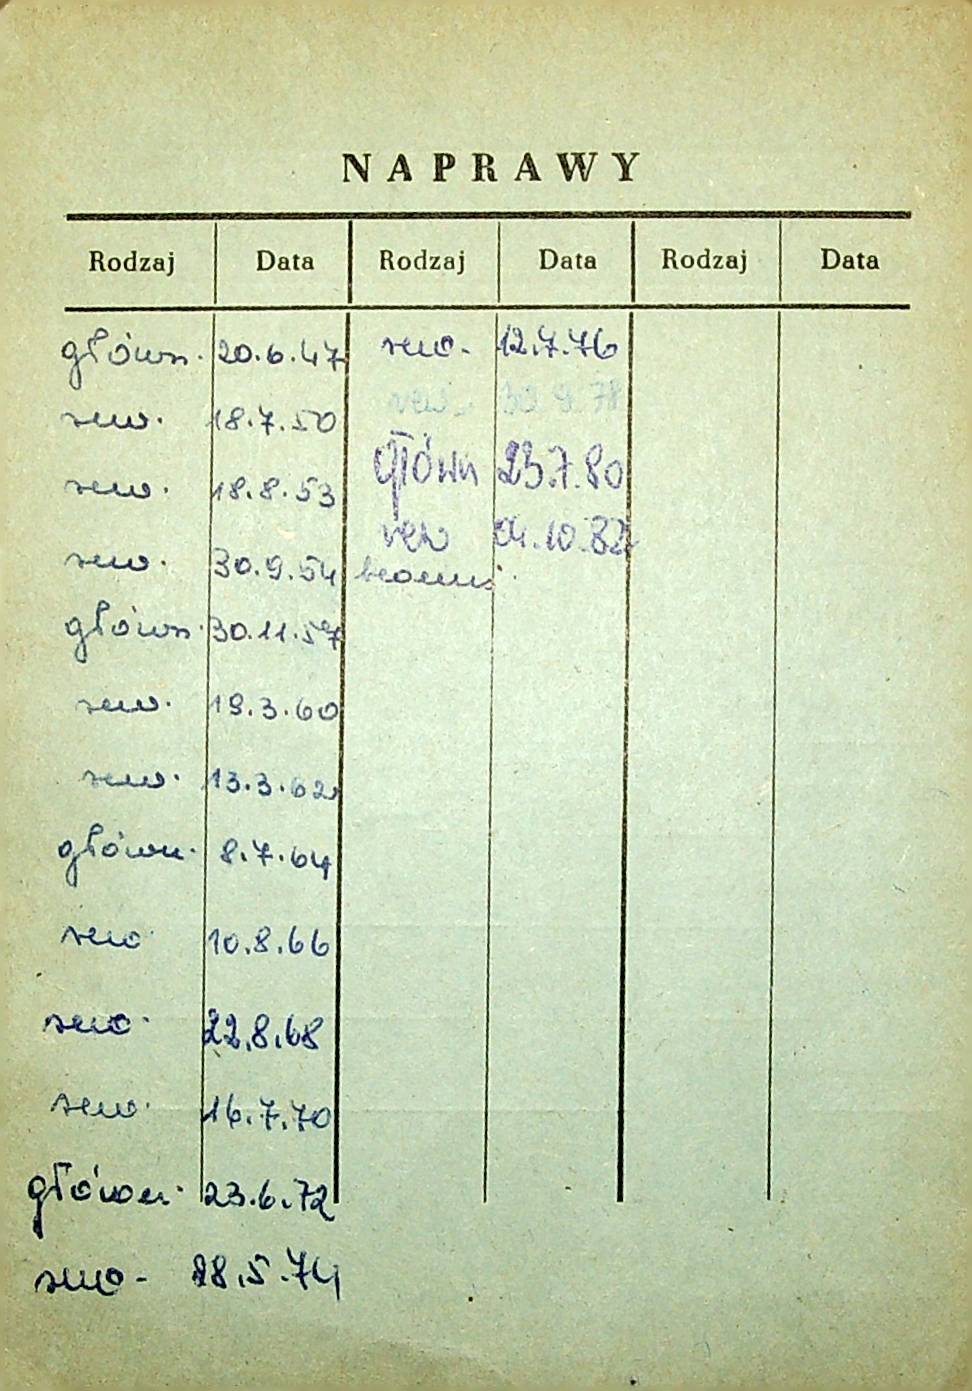 NAPRAWY
Rodzaj Data Rodzaj Data Rodzaj Data
główn. 20.6.47 rew. 12.7.76
rew. 30.9.78
rew. 18.7.50
główn 23.7.80
rew. 18.8.53
rew 04.10.82
rew. 30.9.54
główn. 30.11.57
rew. 19.3.60
rew. 13.3.62
główn. 8.7.64
rew. 10.8.66
rew. 22.8.68
rew. 16.7.70
główn. 23.6.72
rew. 28.5.74